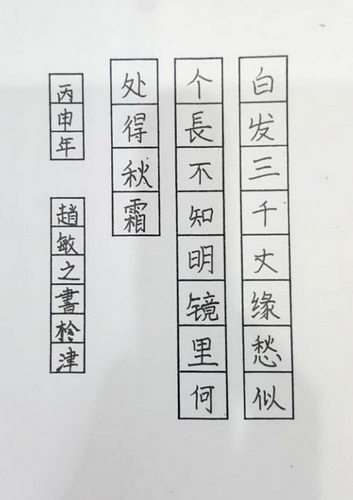 白发三千丈缘愁似
个長不知明镜里何
处得秋霜
丙申年
趙敏之書於津